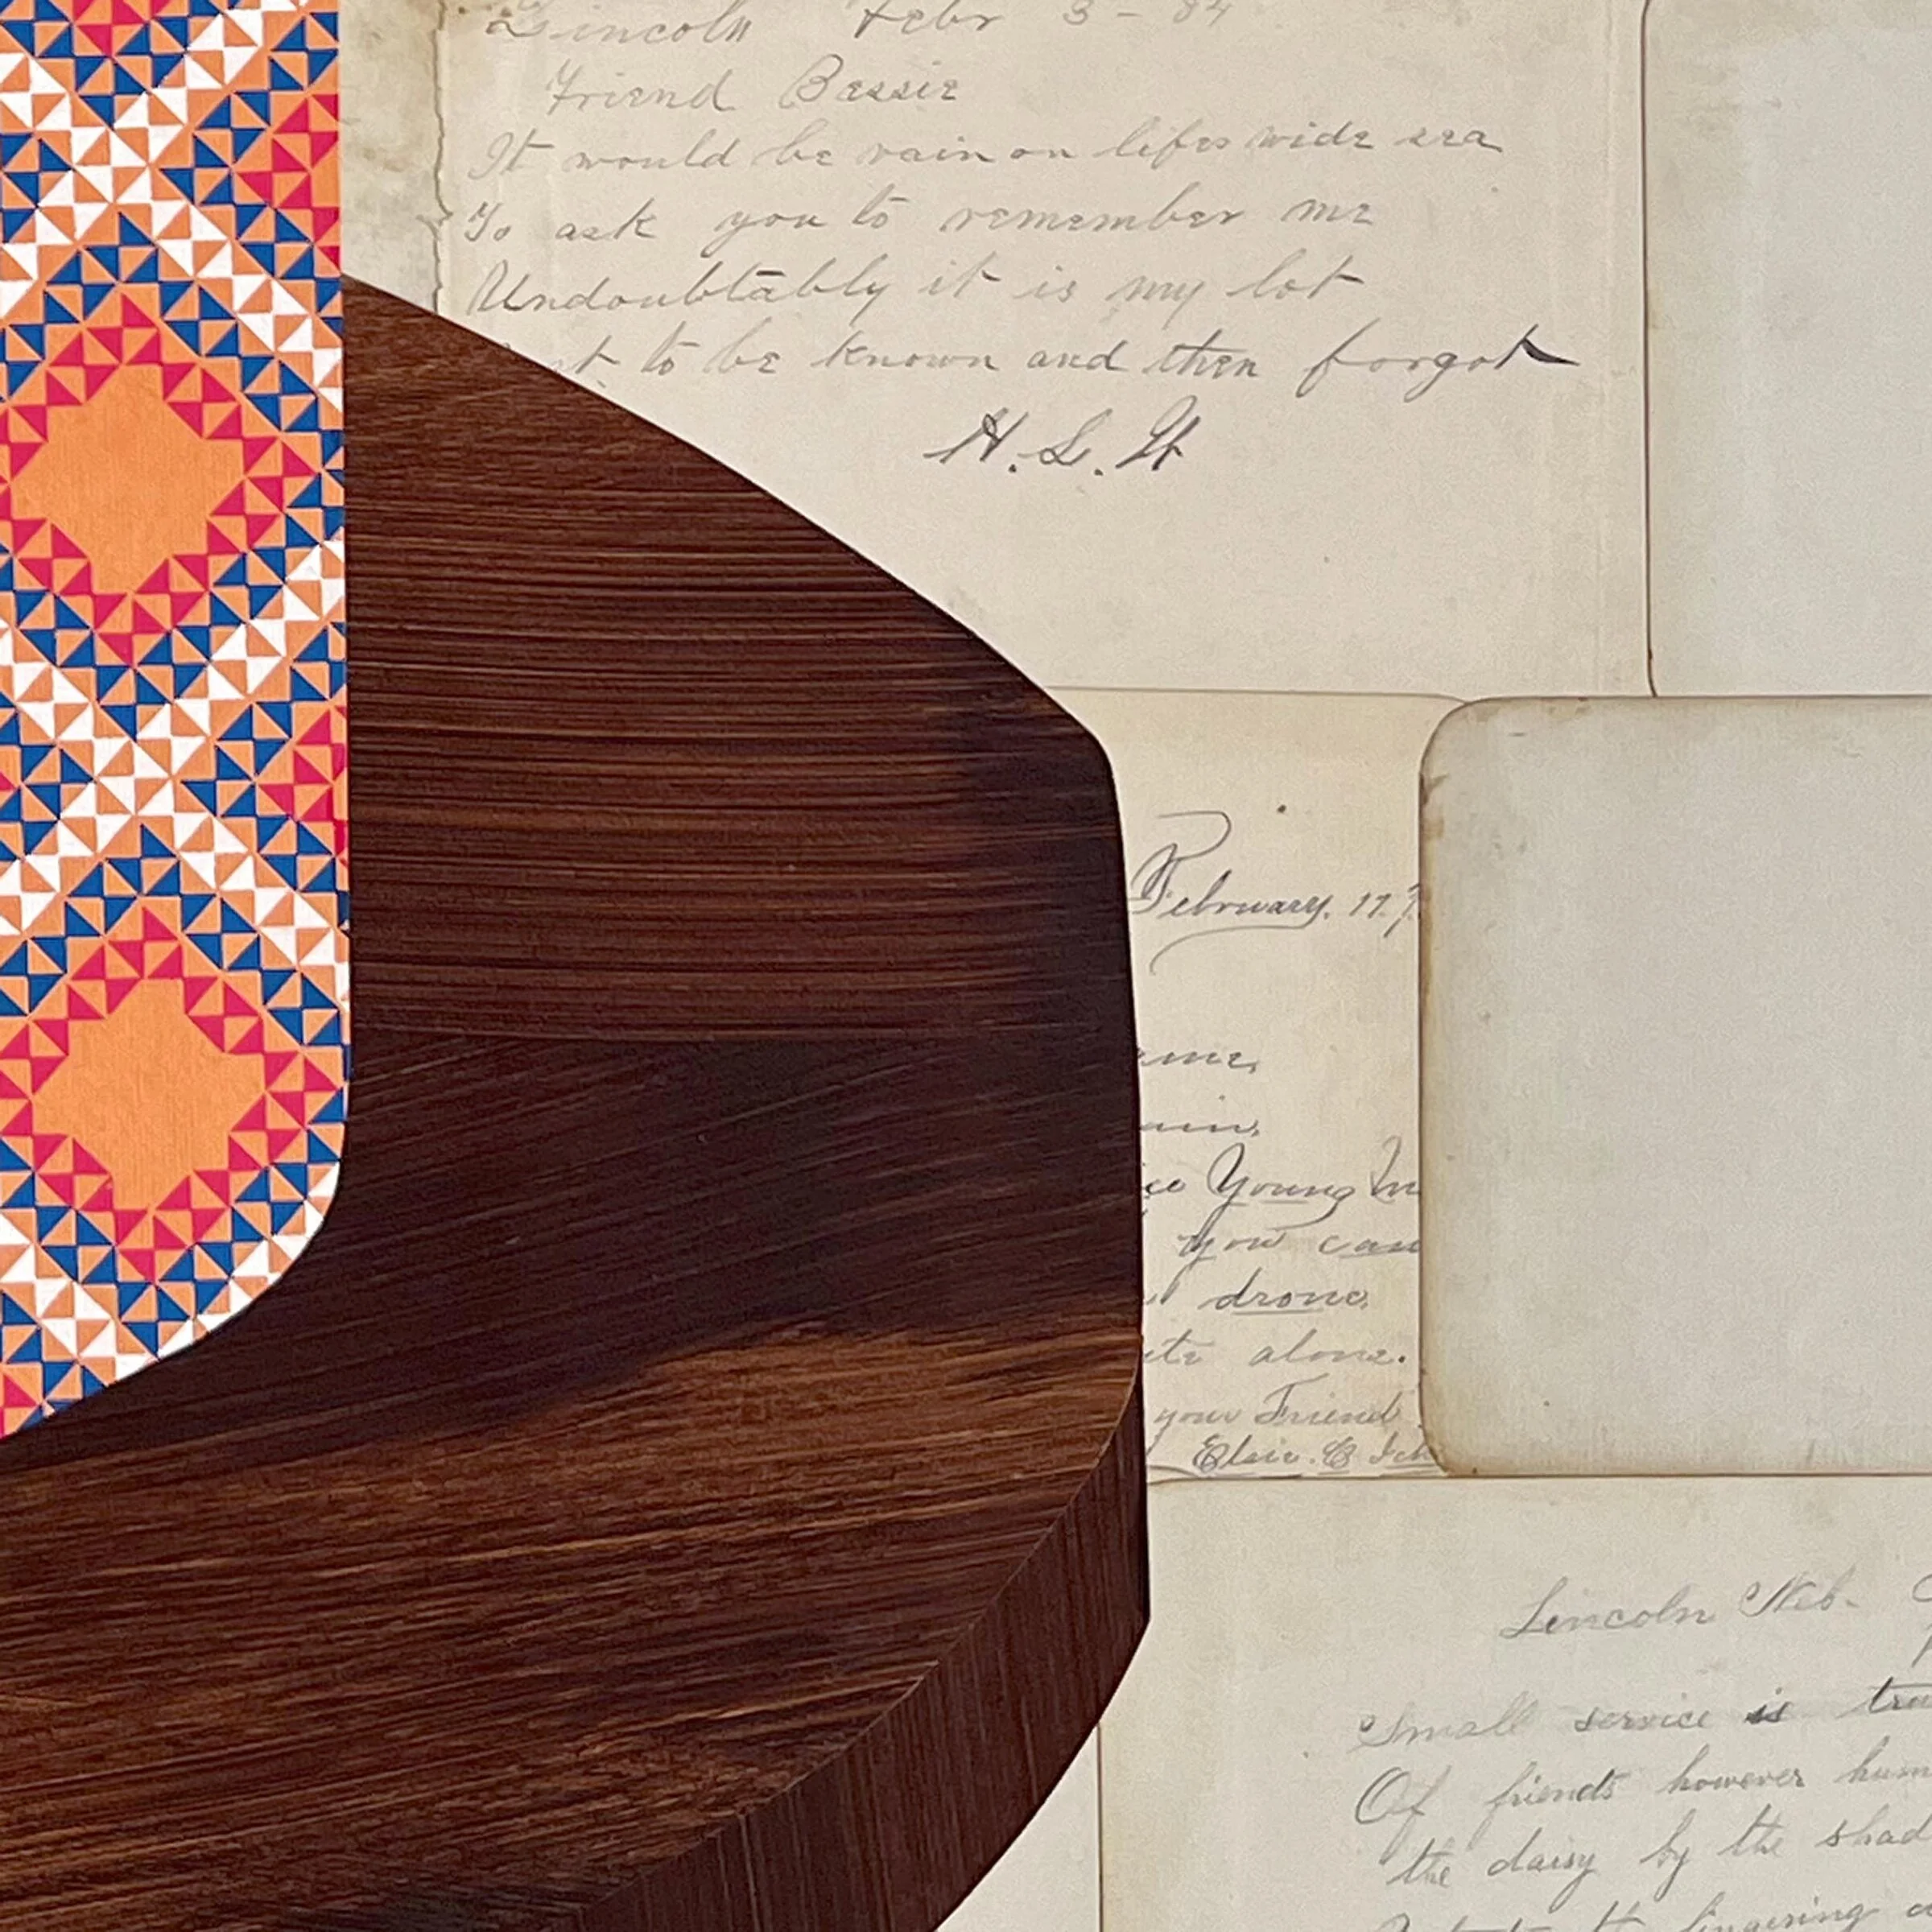 Lincoln Febr 3 - 84
Friend Bessie
It would be vain on lifes wide sea
To ask you to remember me
Undoubtably it is my lot
to be known and then forgot
H. L. H
February. 17.
you can
drone.
alone.
your Friend
Lincoln Neb-
Small service is
Of friends however
the daisy by the
lingering